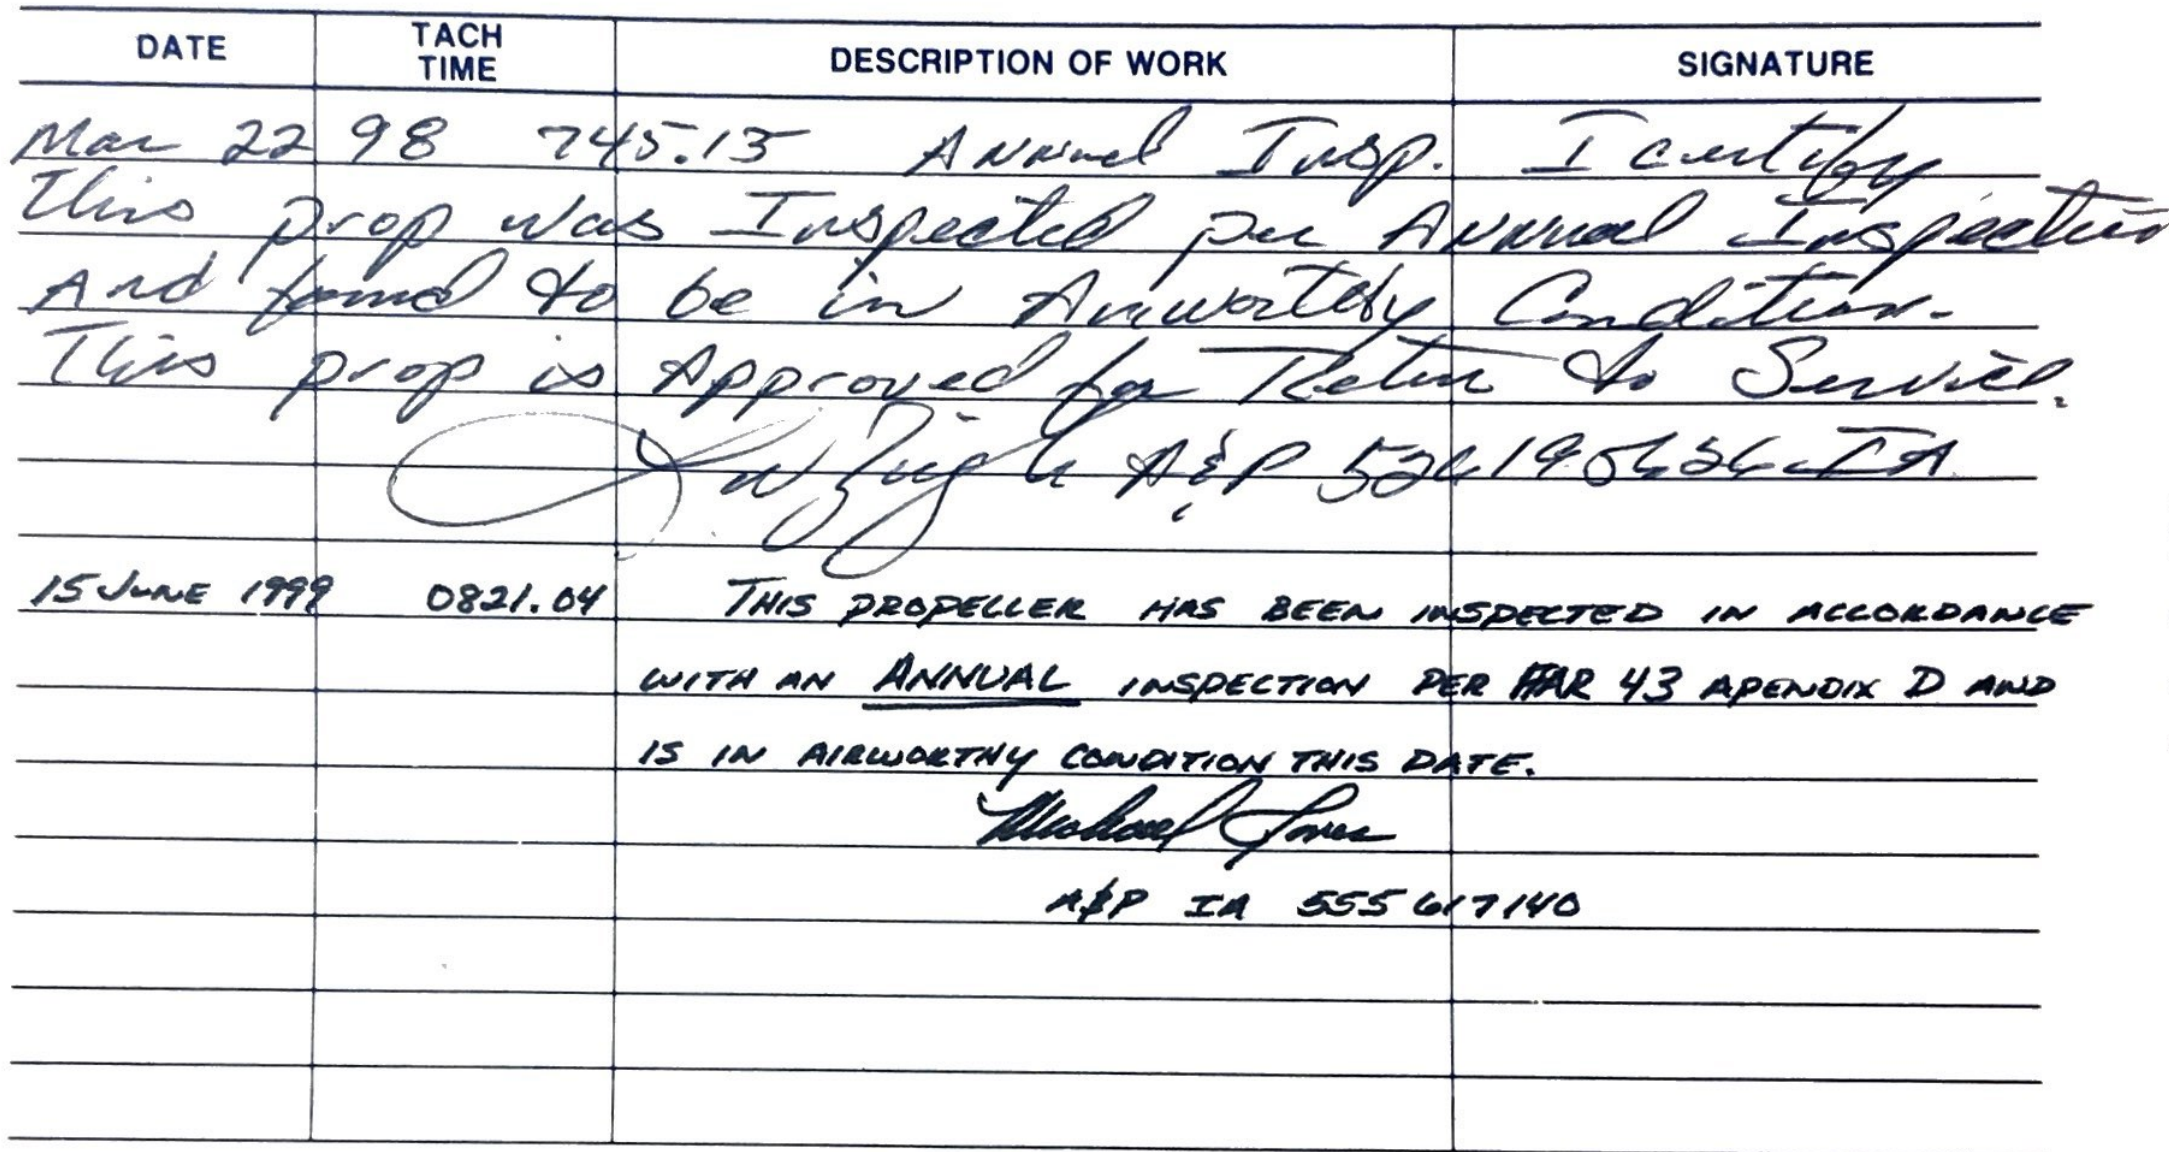 DATE TACH TIME DESCRIPTION OF WORK SIGNATURE
Mar 22 98 745.15 Annual Insp. I certify
This prop was Inspected per Annual Inspection
And found to be in Airworthy Condition.
This prop is Approved for Return to Service.
A&P IA
15 JUNE 1999 0821.04 THIS PROPELLER HAS BEEN INSPECTED IN ACCORDANCE
WITH AN ANNUAL INSPECTION PER FAR 43 APENDIX D AND
IS IN AIRWORTHY CONDITION THIS DATE.
Michael Jones
A&P IA 555617140